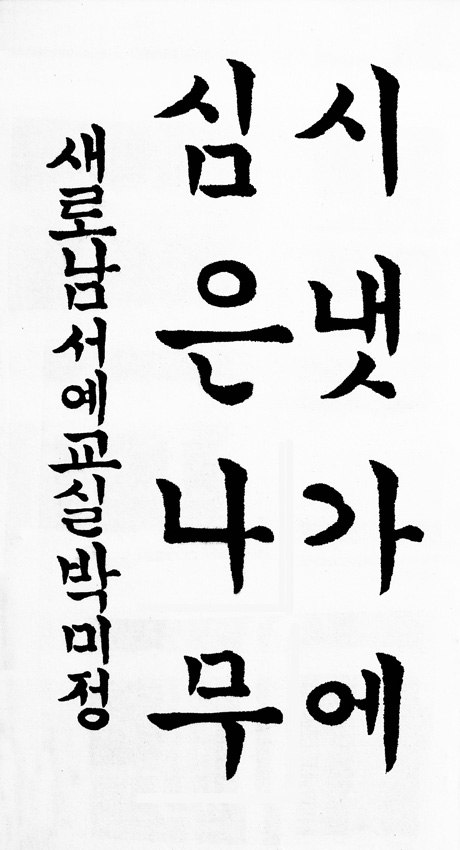 시냇가에
심은나무
새로남서예교실박미정